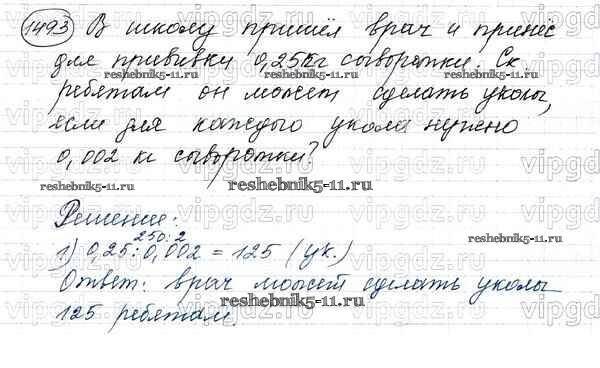 1493 В школу пришёл врач и принёс
для прививки 0,25кг сыворотки. Ск.
ребятам он может сделать уколы,
если для каждого укола нужно
0,002 кг сыворотки?
Решение:
250:2
1) 0,25:0,002 = 125 (ук.)
Ответ: врач может сделать уколы
125 ребятам.
vipgdz.ru
reshebnik5-11.ru